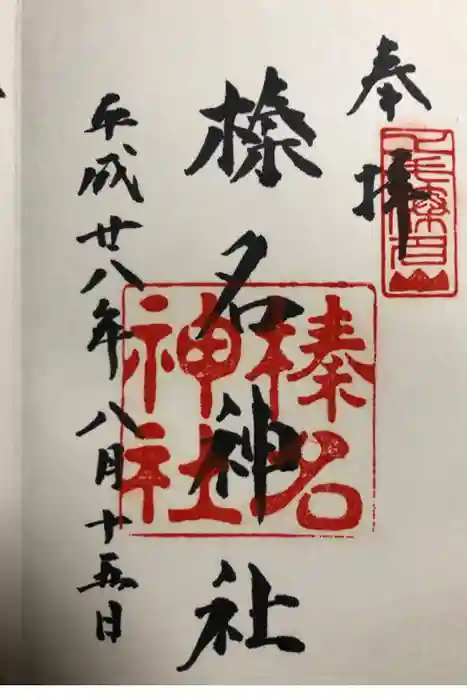 奉拝
上毛榛名山
榛名神社
榛名
神社
平成廿八年八月十五日